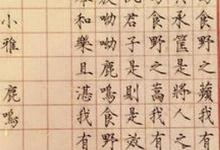 食野之蘋我有
承筐是將人之
食野之蒿我有
君子是則是效
呦呦鹿鳴食野
和樂且湛我有
小雅 鹿鳴